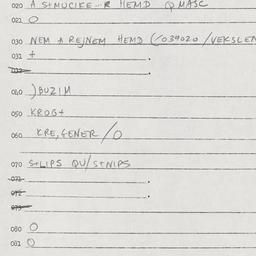 020 A STMUCIKE R HEMD Q MASC
021 O
030 NEM A REJNEM HEMD (/039020 /VEKSLEN
031 +
032
040 )BUZIM
050 KROG+
060 KRE,GENER/O
070 S+LIPS QU/S+NIPS
071
072
073
080 O
081 O